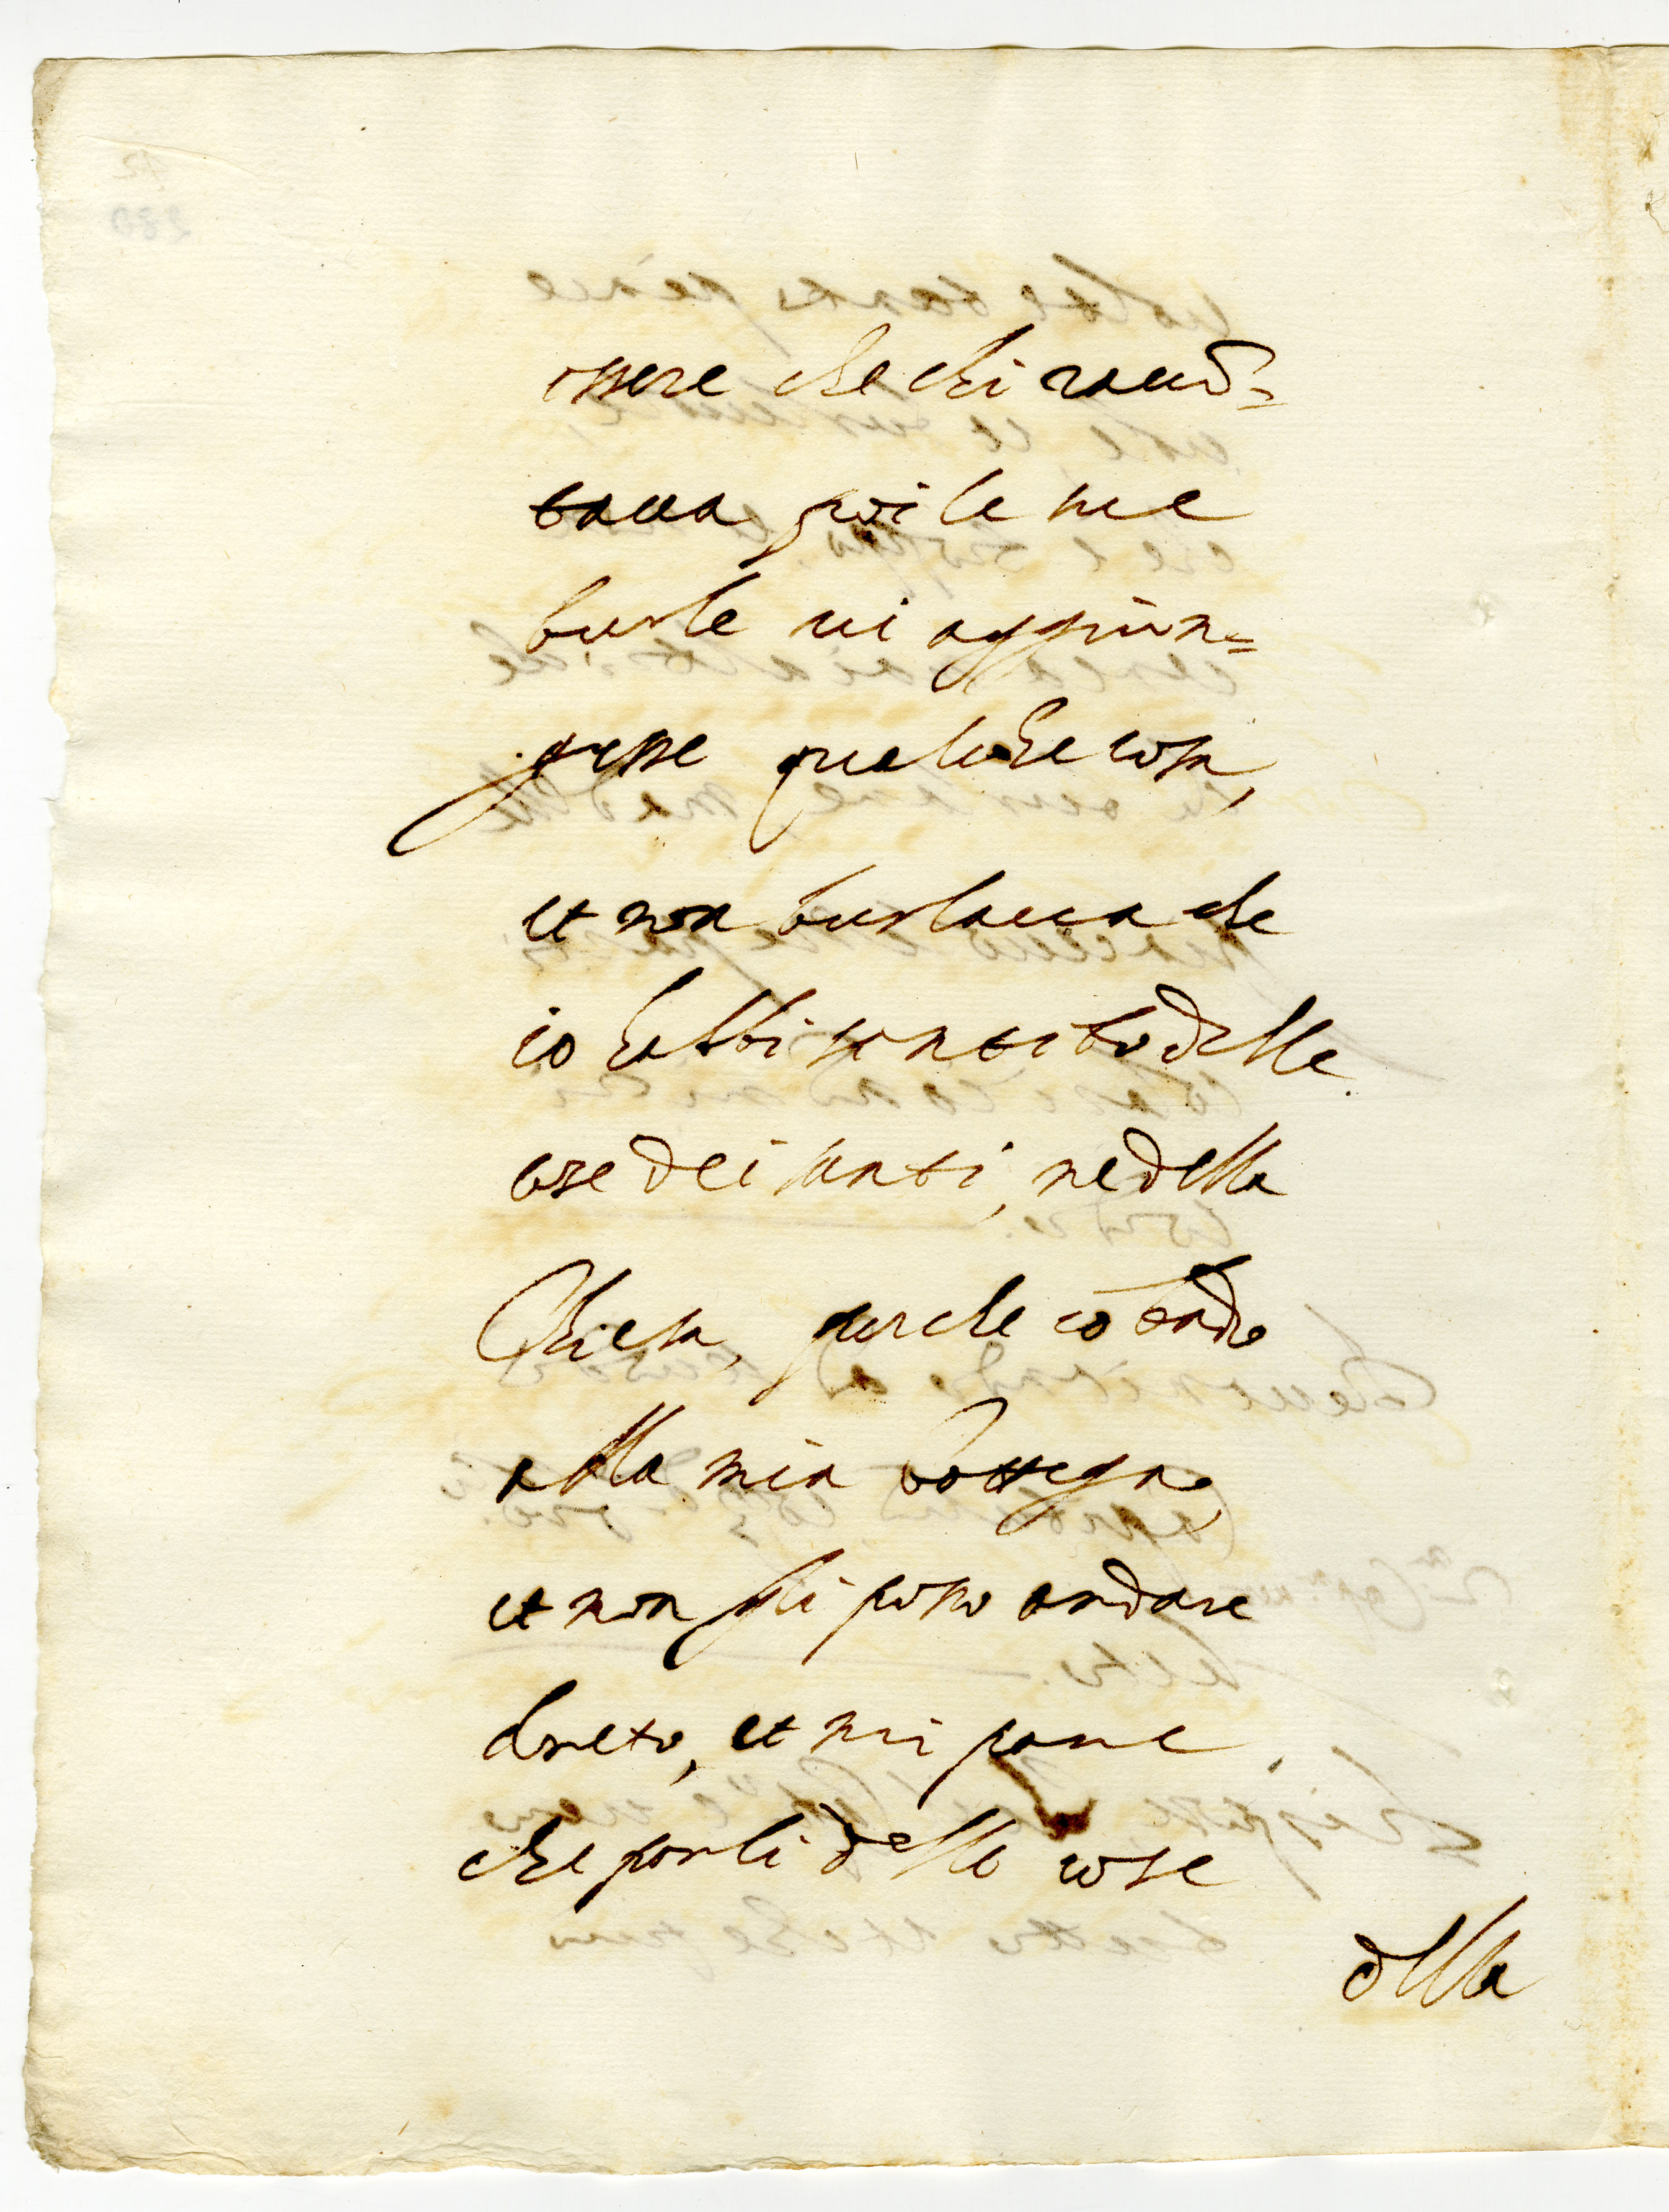 essere che chi racco͂=
taua poi le mie
burle ui aggiun=
gesse qualche cosa,
et non burlaua che
io habbi sentito delle
cose dei santi, ne della
Chiesa, perche io bado
alla mia bottega,
et non gli posso andare
drieto, et mi pare
che parli delle cose
della